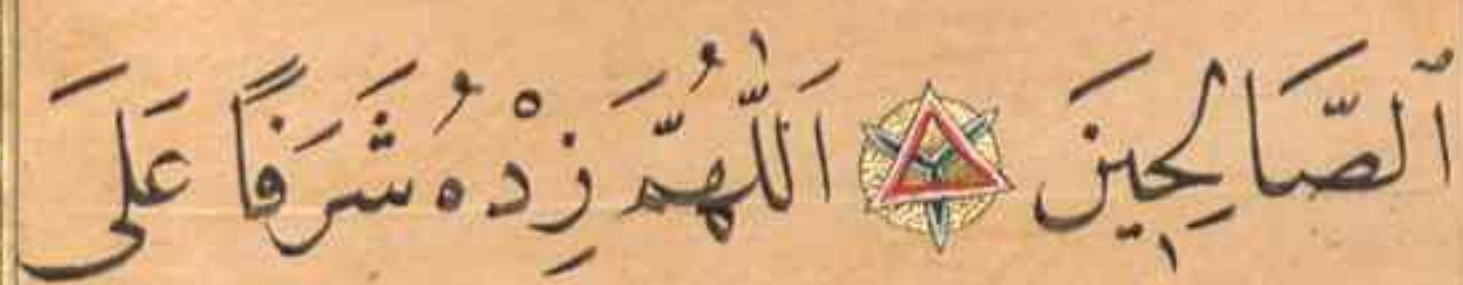 ٱلصَّالِحِينَ اَللّٰهُمَّ زِدْهُ شَرَفًا عَلَى